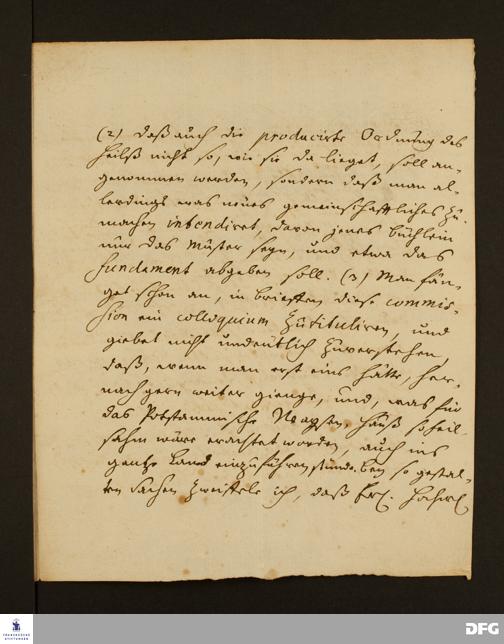 (2) daß auch die producirte Ordnung des
Heilß nicht so, wie sie da lieget, soll an-
genommen werden, sondern daß man al-
lerdings was neues gemeinschafftliches zu
machen intendiret, davon jenes büchlein
nur das Muster seyn, und etwa das
fundament abgeben soll. (3) Man fän-
get schon an, in briefen diese commis-
sion ein colloquium zu tituliren, und
giebet nicht undeutlich zuverstehen,
daß, wenn man erst eins hätte, her-
nach gern weiter gienge, und, was für
das Potsdammische Waysen-Hauß so heil-
sahm wäre erachtet worden, auch ins
gantze Land einzuführen stünde. Bey so gestal-
ten Sachen zweiffele ich, daß Ew. Hochw.
FRANCKESCHE
STIFTUNGEN
DFG